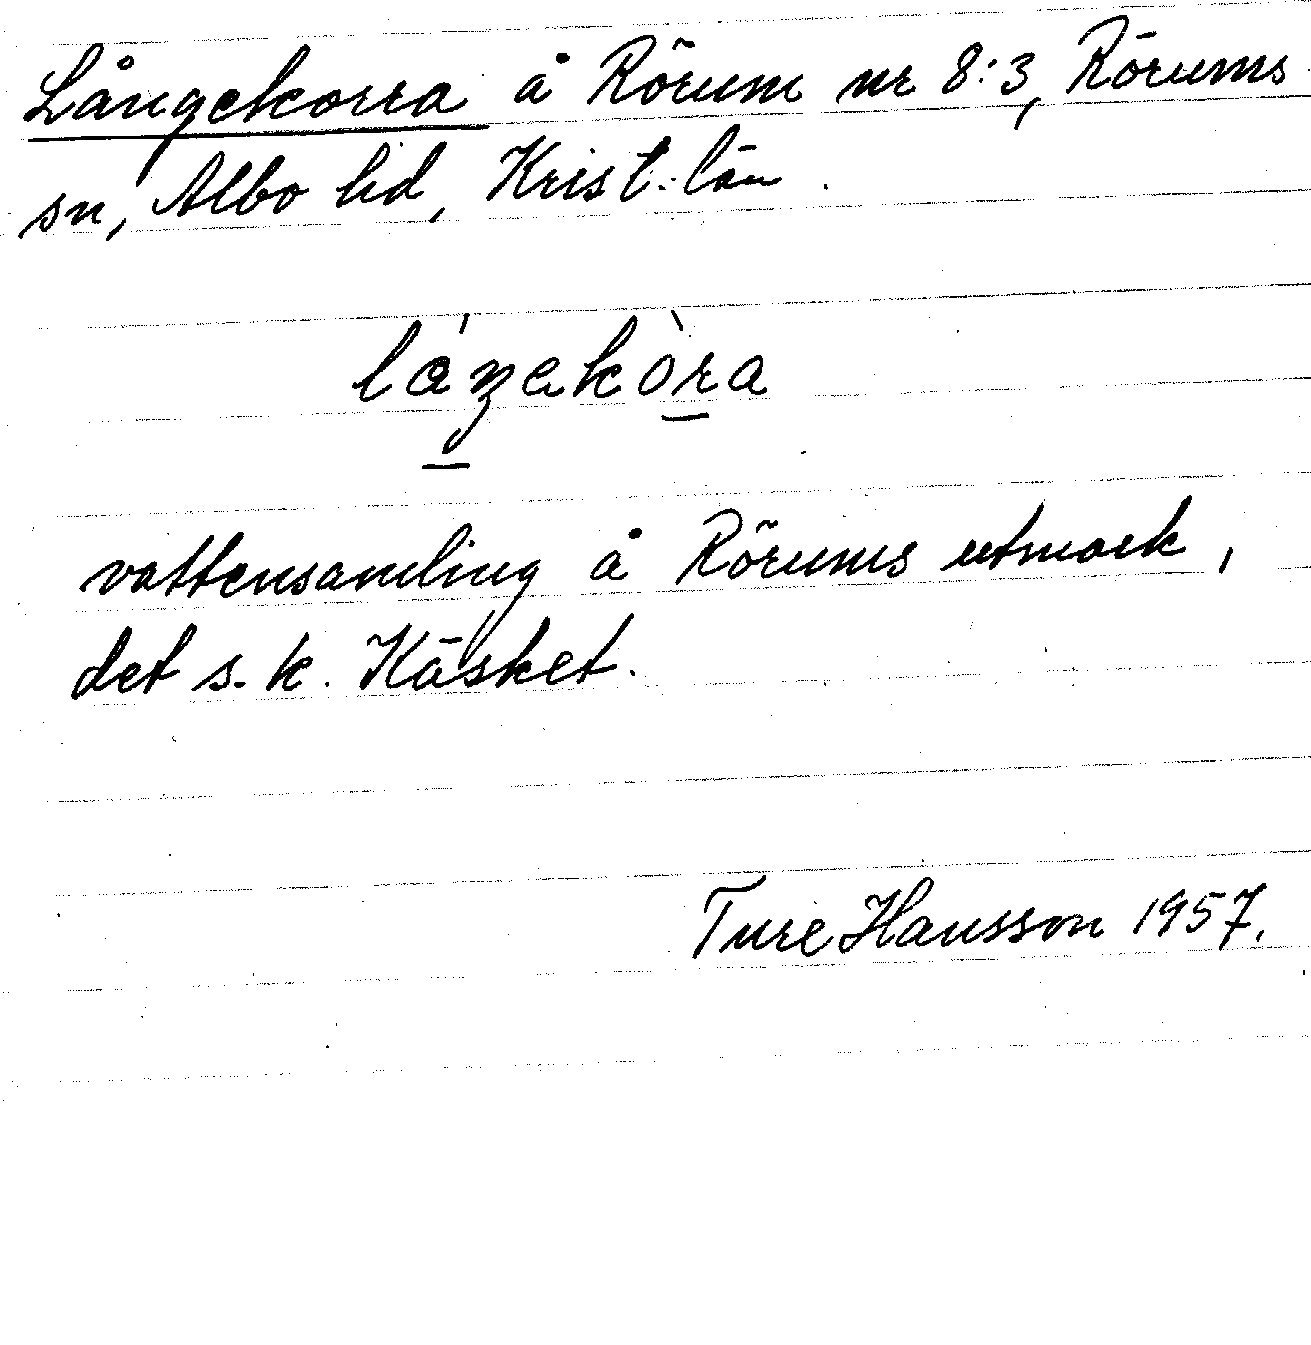 Långekorra å Rörum nr 8:3, Rörums
sn, Albo hd, Krist. län.
låŋekòra
vattensamling å Rörums utmark,
det s.k. Käsket.
Ture Hansson 1957.